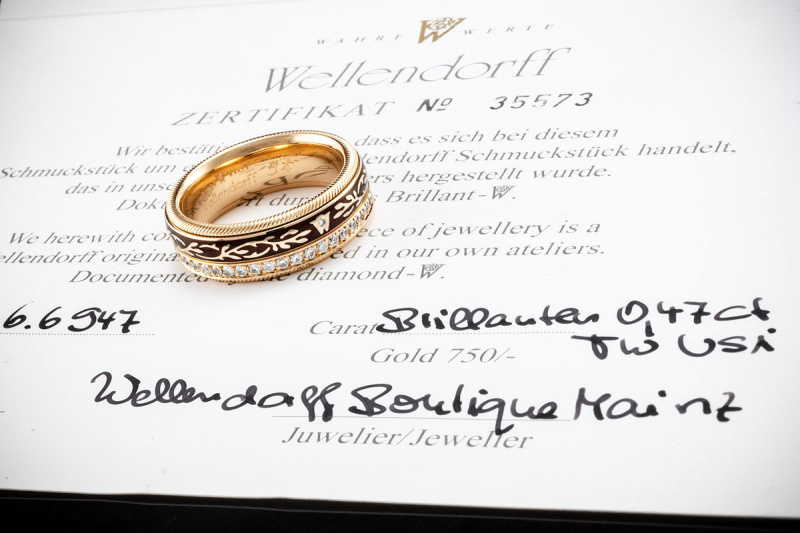 WAHRE W WERTE
Wellendorff
ZERTIFIKAT No 35573
Wir dass es sich bei diesem
Schmuckstück um Schmuckstück handelt,
das in hergestellt wurde.
Brillant-W.
We herewith piece of jewellery is a
in our own ateliers.
Documented diamond-W.
6.6947
Carat Brillanten 0,47ct
TW VSi
Gold 750/-
Wellendorff Boutique Mainz
Juwelier/Jeweller